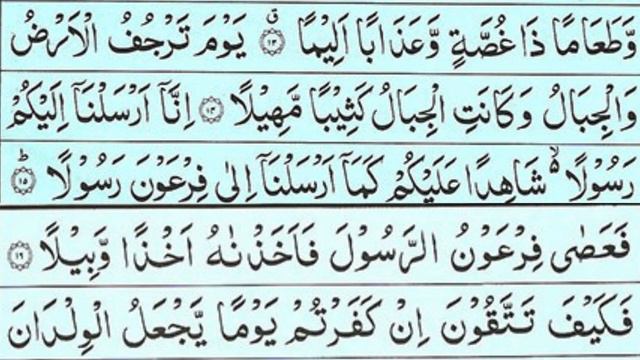 وَّطَعَامًا ذَا غُصَّةٍ وَّعَذَابًا اَلِيْمًا ۝١٣ۗ يَوْمَ تَرْجُفُ الْاَرْضُ
وَالْجِبَالُ وَكَانَتِ الْجِبَالُ كَثِيْبًا مَّهِيْلًا ۝١٤ اِنَّآ اَرْسَلْنَآ اِلَيْكُمْ
رَسُوْلًا ۙ شَاهِدًا عَلَيْكُمْ كَمَآ اَرْسَلْنَآ اِلٰى فِرْعَوْنَ رَسُوْلًا ۝١٥ؕ
فَعَصٰى فِرْعَوْنُ الرَّسُوْلَ فَاَخَذْنٰهُ اَخْذًا وَّبِيْلًا ۝١٦
فَكَيْفَ تَتَّقُوْنَ اِنْ كَفَرْتُمْ يَوْمًا يَّجْعَلُ الْوِلْدَانَ